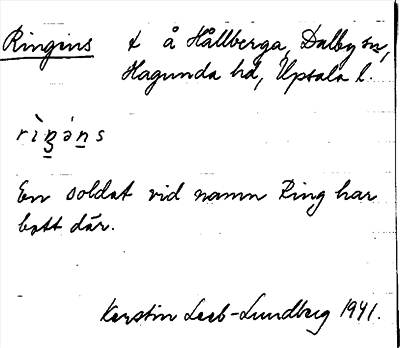 Ringins t å Hållberga, Dalby sn,
Hagunda hd, Upsala l.
rìŋ̱ə́ṉs
En soldat vid namn Ring har
bott där.
Kerstin Leeb-Lundberg 1941.